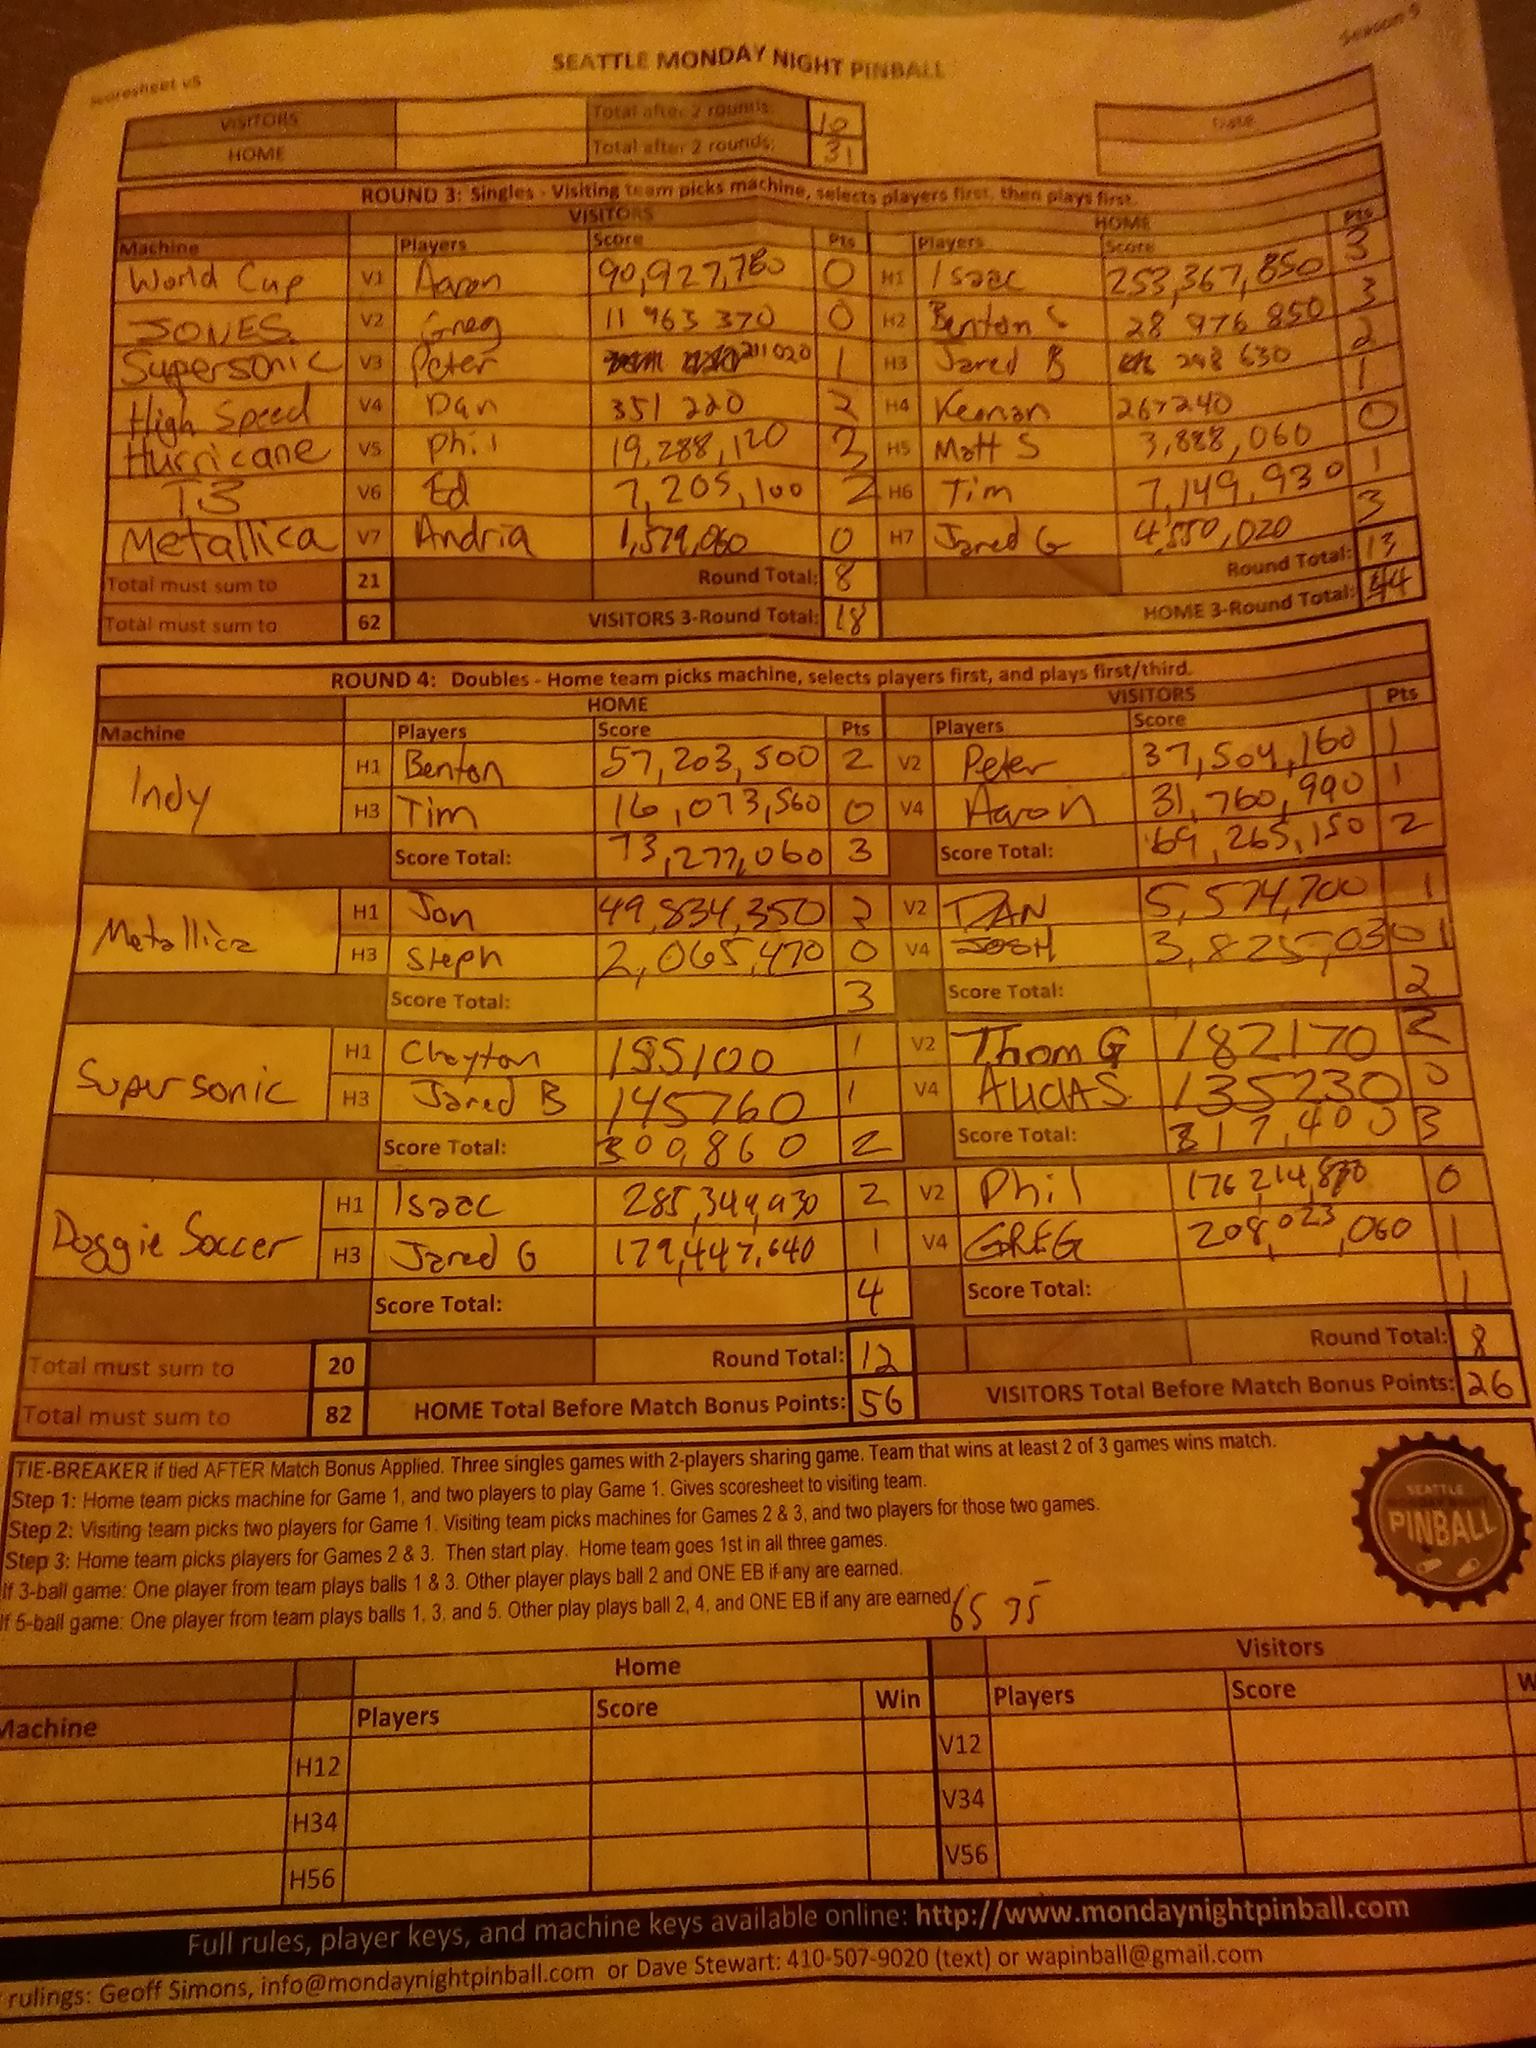 Scoresheet v5
Season 5
SEATTLE MONDAY NIGHT PINBALL
VISITORS Total after 2 rounds: 10 Date
HOME Total after 2 rounds: 31
ROUND 3: Singles - Visiting team picks machine, selects players first, then plays first.
VISITORS HOME
Machine Players Score Pts Players Score Pts
World Cup V1 Aaron 90,927,780 0 H1 Isaac 253,367,850 3
JONES V2 Greg 11 963 370 0 H2 Benton S 28 976 850 3
Supersonic V3 Peter 211020 1 H3 Jared B 298 630 2
High Speed V4 Dan 351 220 2 H4 Keenan 267240 1
Hurricane V5 Phil 19,288,120 3 H5 Matt S 3,888,060 0
T3 V6 Ed 7,205,100 2 H6 Tim 7,149,930 1
Metallica V7 Andria 1,579,060 0 H7 Jared G 4,550,020 3
Total must sum to 21 Round Total: 8 Round Total: 13
Total must sum to 62 VISITORS 3-Round Total: 18 HOME 3-Round Total: 44
ROUND 4: Doubles - Home team picks machine, selects players first, and plays first/third.
HOME VISITORS
Machine Players Score Pts Players Score Pts
Indy H1 Benton 57,203,500 2 V2 Peter 37,504,160 1
H3 Tim 16,073,560 0 V4 Aaron 31,760,990 1
Score Total: 73,277,060 3 Score Total: 69,265,150 2
Metallica H1 Jon 49,834,350 2 V2 DAN 5,574,700 1
H3 Steph 2,065,470 0 V4 JOSH 3,825,030 1
Score Total: 3 Score Total: 2
Supersonic H1 Clayton 155100 1 V2 Thom G 182170 2
H3 Jared B 145760 1 V4 ALICIA S 135230 0
Score Total: 300,860 2 Score Total: 317,400 3
Doggie Soccer H1 Isaac 285,349,930 2 V2 Phil 176,214,870 0
H3 Jared G 179,447,640 1 V4 GREG 208,023,060 1
Score Total: 4 Score Total: 1
Total must sum to 20 Round Total: 12 Round Total: 8
Total must sum to 82 HOME Total Before Match Bonus Points: 56 VISITORS Total Before Match Bonus Points: 26
TIE-BREAKER if tied AFTER Match Bonus Applied. Three singles games with 2-players sharing game. Team that wins at least 2 of 3 games wins match.
Step 1: Home team picks machine for Game 1, and two players to play Game 1. Gives scoresheet to visiting team.
Step 2: Visiting team picks two players for Game 1. Visiting team picks machines for Games 2 & 3, and two players for those two games.
Step 3: Home team picks players for Games 2 & 3. Then start play. Home team goes 1st in all three games.
If 3-ball game: One player from team plays balls 1 & 3. Other player plays ball 2 and ONE EB if any are earned.
If 5-ball game: One player from team plays balls 1, 3, and 5. Other play plays ball 2, 4, and ONE EB if any are earned
65 35
SEATTLE
MONDAY NIGHT
PINBALL
Home Visitors
Machine Players Score Win Players Score W
H12 V12
H34 V34
H56 V56
Full rules, player keys, and machine keys available online: http://www.mondaynightpinball.com
rulings: Geoff Simons, info@mondaynightpinball.com or Dave Stewart: 410-507-9020 (text) or wapinball@gmail.com